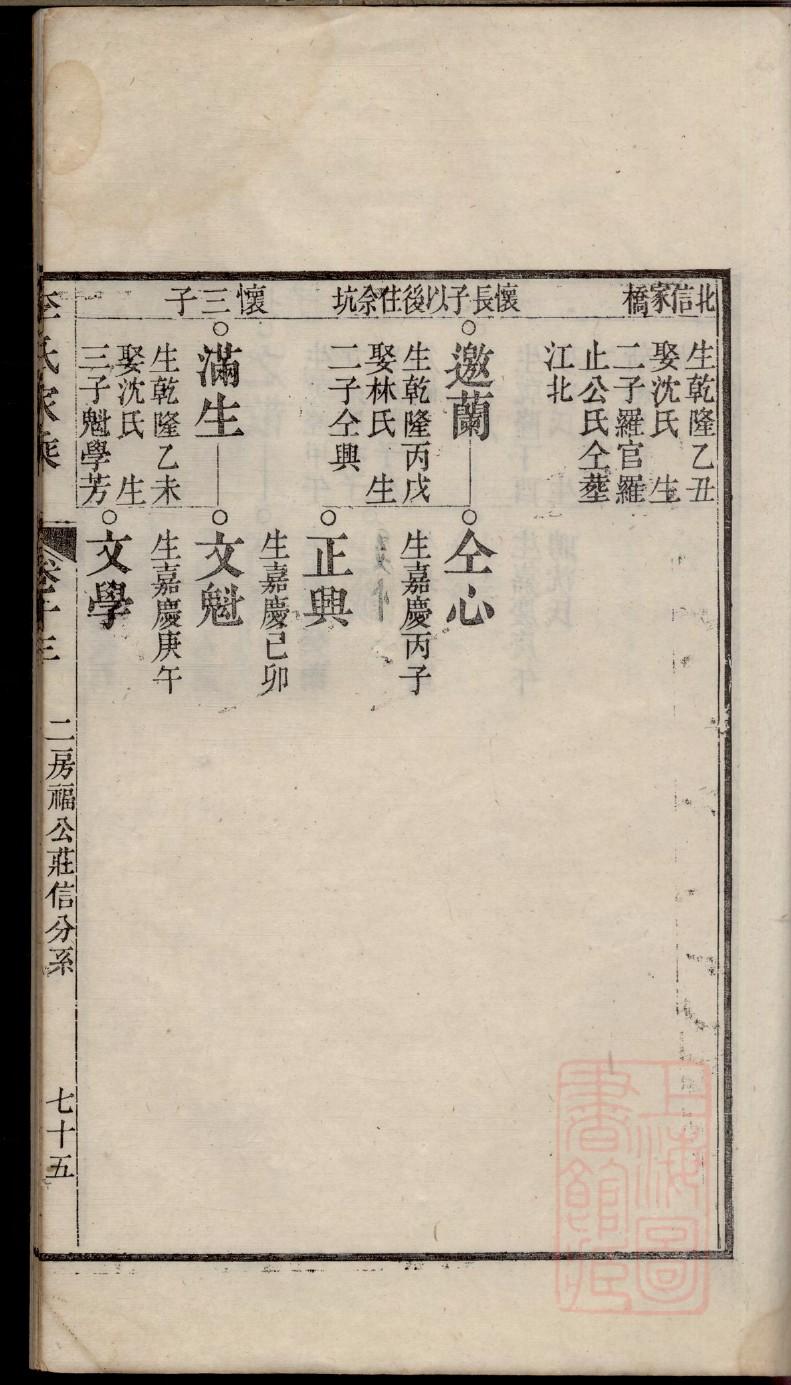 北信家橋
生乾隆乙丑
娶沈氏　生
二子羅官羅
止公氏仝塟
江北
懷長子以後住余坑
邀蘭
生乾隆丙戌
娶林氏　生
二子仝興
仝心
生嘉慶丙子
正興
生嘉慶己卯
懷三子
滿生
生乾隆乙未
娶沈氏　生
三子魁學芳
文魁
生嘉慶庚午
文學
李氏家乘
卷二十三
二房福公莊信分系
七十五
上海圖書館藏